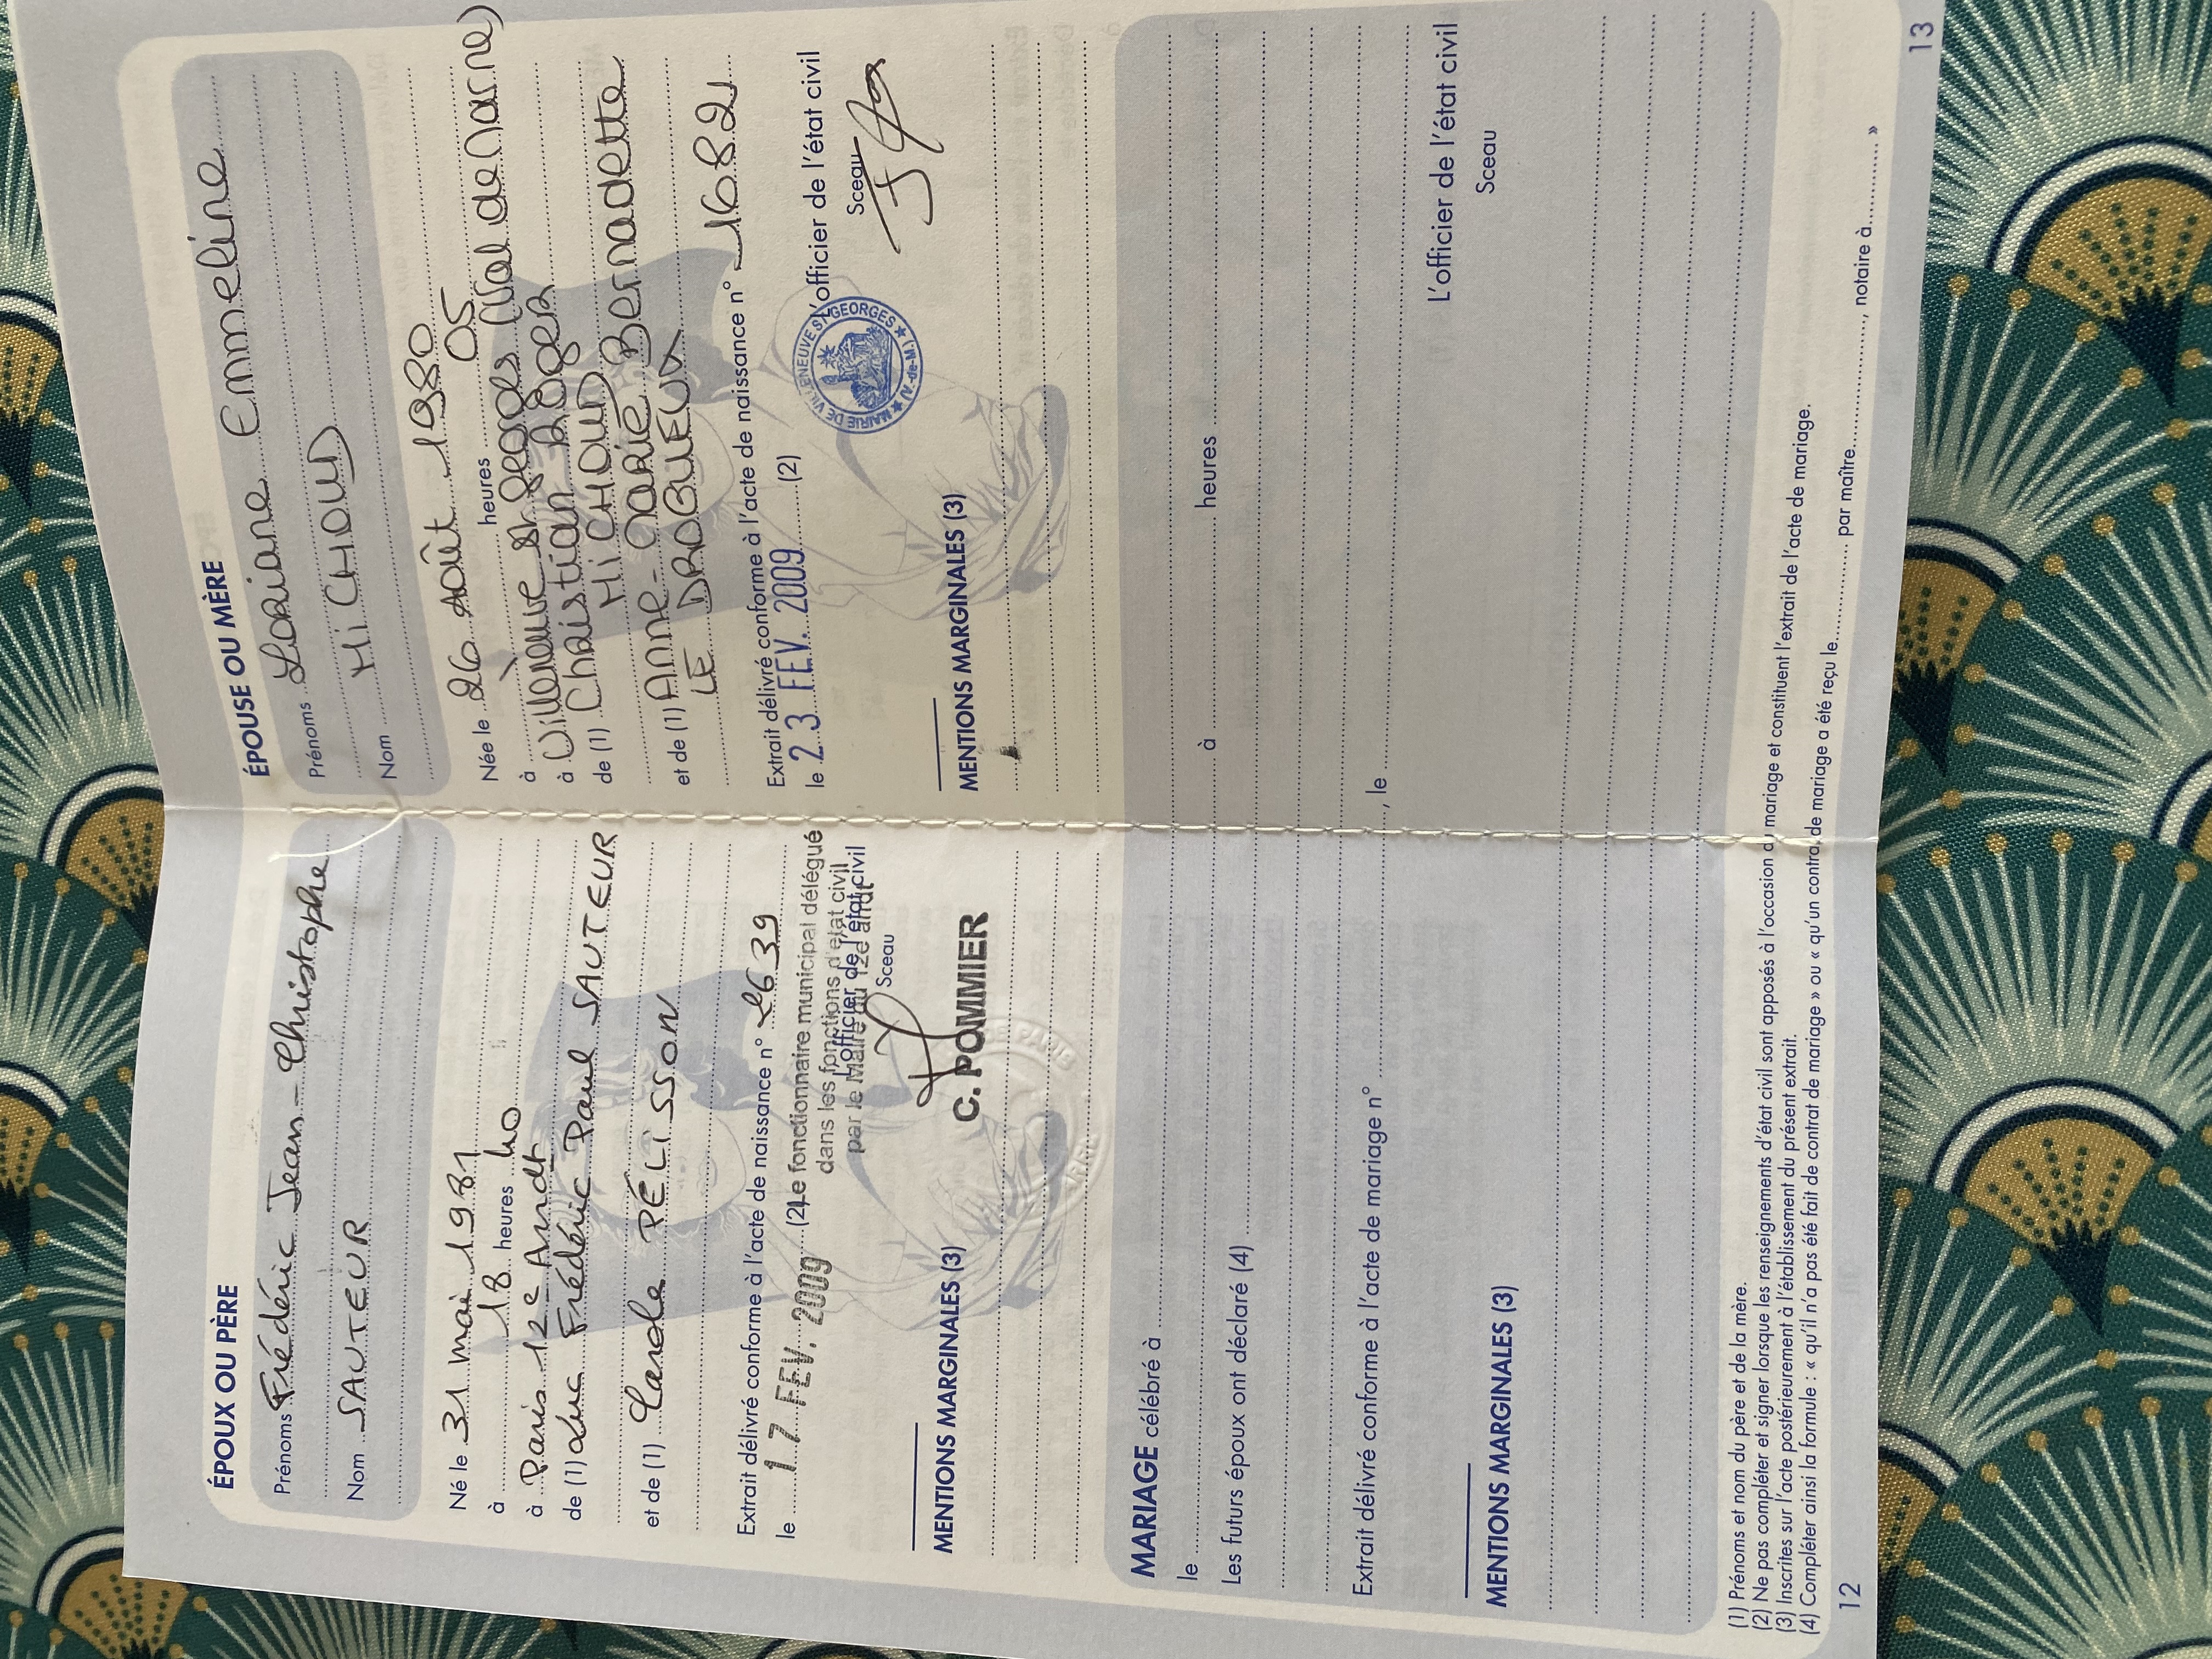 ÉPOUX OU PÈRE
Prénoms Frédéric Jean-Christophe
Nom SAUTEUR
Né le 31 mai 1981
à 18 heures 40
à Paris 12e Arrdt
de (1) Luc Frédéric Paul SAUTEUR
et de (1) Carole PÉLISSON
Extrait délivré conforme à l'acte de naissance n° 2639
le 17 FEV. 2009 (2) Le fonctionnaire municipal délégué
dans les fonctions d'état civil
L'officier de l'état civil
par le Maire du 12e arrdt
Sceau
C. POMMIER
MENTIONS MARGINALES (3)
ÉPOUSE OU MÈRE
Prénoms Loriane Emmeline
Nom MiCHOUD
Née le 26 Août 1980
à heures 05
à Villeneuve St Georges (Val de Marne)
de (1) Christian Roger
MiCHOUD
et de (1) Anne-Marie Bernadette
LE DROGUEUX
Extrait délivré conforme à l'acte de naissance n° 1682
le 23 FEV. 2009 (2)
L'officier de l'état civil
Sceau
MAIRIE DE VILLENEUVE ST GEORGES ★ (V.-de-M.) ★
MENTIONS MARGINALES (3)
MARIAGE célébré à
le à heures
Les futurs époux ont déclaré (4)
Extrait délivré conforme à l'acte de mariage n° , le
L'officier de l'état civil
Sceau
MENTIONS MARGINALES (3)
(1) Prénoms et nom du père et de la mère.
(2) Ne pas compléter et signer lorsque les renseignements d'état civil sont apposés à l'occasion du mariage et constituent l'extrait de l'acte de mariage.
(3) Inscrites sur l'acte postérieurement à l'établissement du présent extrait.
(4) Compléter ainsi la formule : « qu'il n'a pas été fait de contrat de mariage » ou « qu'un contrat de mariage a été reçu le par maître , notaire à »
12
13